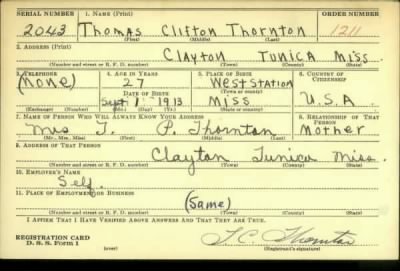 SERIAL NUMBER 1. NAME (Print) ORDER NUMBER
2043 Thomas Clifton Thornton 1211
(First) (Middle) (Last)
2. ADDRESS (Print)
Clayton Tunica Miss.
(Number and street or R. F. D. number) (Town) (County) (State)
3. TELEPHONE 4. AGE IN YEARS 5. PLACE OF BIRTH 6. COUNTRY OF CITIZENSHIP
(None) 27 West Station
DATE OF BIRTH (Town or county)
Sept 1 - 1913 Miss U.S.A.
(Exchange) (Number) (Mo.) (Day) (Yr.) (State or country)
7. NAME OF PERSON WHO WILL ALWAYS KNOW YOUR ADDRESS 8. RELATIONSHIP OF THAT PERSON
Mrs T. P. Thornton Mother
(Mr., Mrs., Miss) (First) (Middle) (Last)
9. ADDRESS OF THAT PERSON
Clayton Tunica Miss.
(Number and street or R. F. D. number) (Town) (County) (State)
10. EMPLOYER'S NAME
Self.
11. PLACE OF EMPLOYMENT OR BUSINESS
(Same)
(Number and street or R. F. D. number) (Town) (County) (State)
I AFFIRM THAT I HAVE VERIFIED ABOVE ANSWERS AND THAT THEY ARE TRUE.
REGISTRATION CARD
D. S. S. Form 1 (over) T C Thornton
(Registrant's signature)